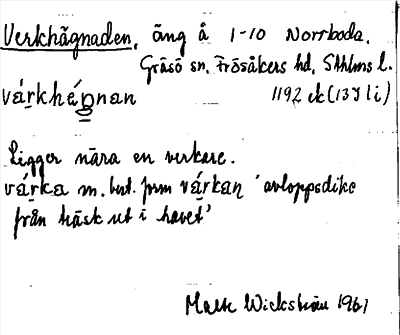 Verkhägnaden, äng å 1-10 Norrboda.
Gräsö sn, Frösåkers hd, Sthlms l.
várkhégnan 1192 ek (13J 1i)
Ligger nära en verkare.
várka m. best. form várkan 'avloppsdike
från träsk ut i havet'
Mats Wickström 1961